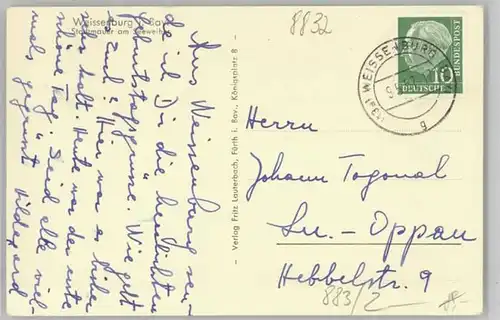 Weissenburg i. Bay.
Stadtmauer am Seeweiher
Aus Weissenburg sen-
de ich Dir die herzlichsten
Geburtstagsgrüsse. Wie geht
es Euch? Hier war es bisher
sehr kalt. Heute war der erste
schöne Tag. Seid alle viel-
mals gegrüsst Hildegard
- Verlag Fritz Lauterbach, Fürth i. Bay., Königsplatz 8 -
8832
WEISSENBURG
(13a)
g
10
DEUTSCHE
BUNDESPOST
Herrn
Johann Togonal
Lu.-Oppau
Hebbelstr. 9
883/2
8,-